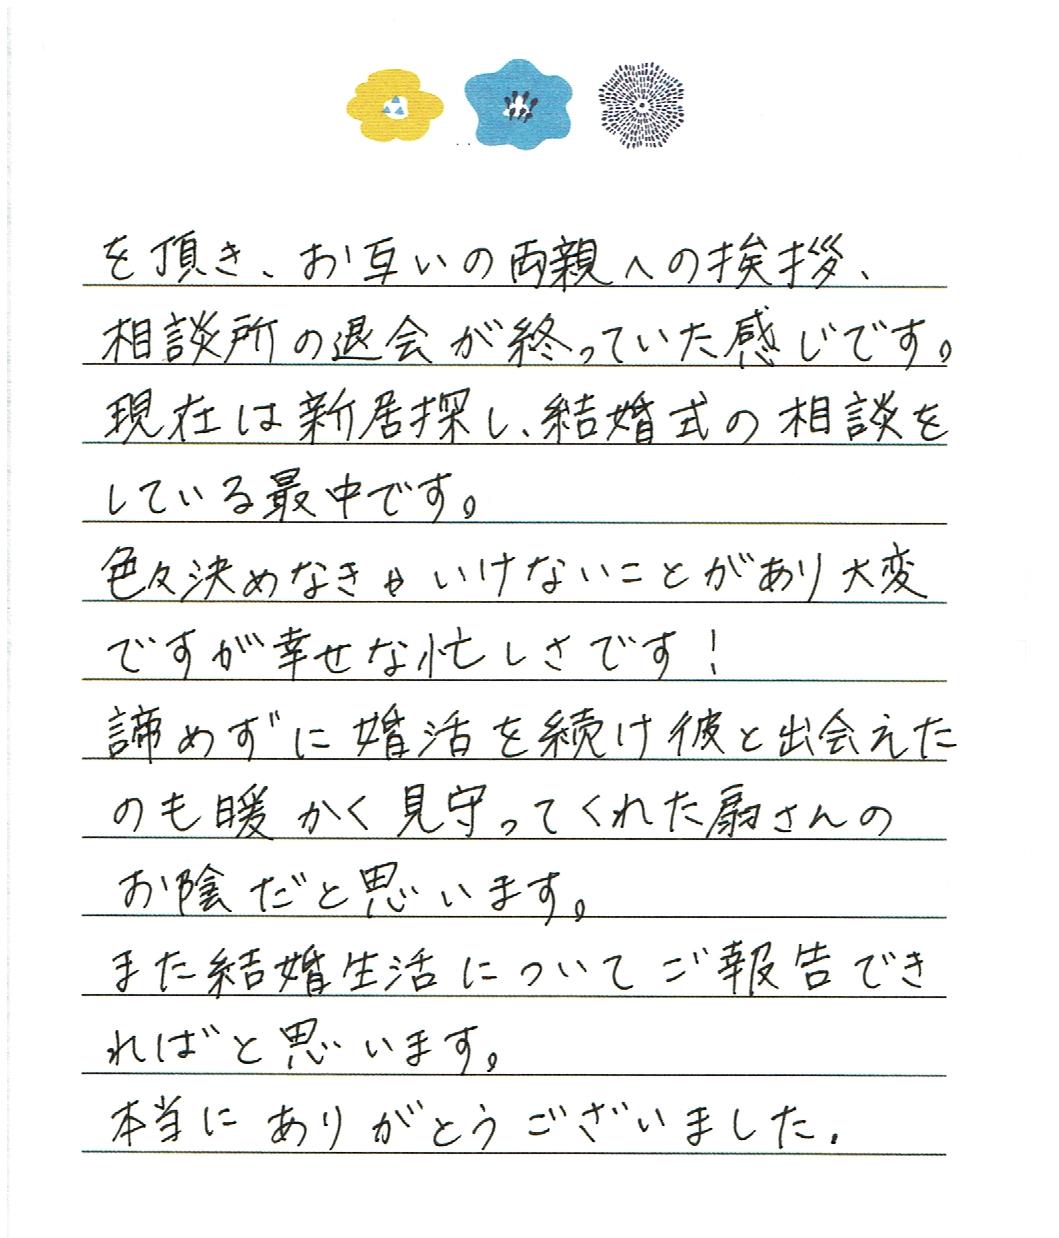 を頂き、お互いの両親への挨拶、
相談所の退会が終っていた感じです。
現在は新居探し、結婚式の相談を
している最中です。
色々決めなきゃいけないことがあり大変
ですが幸せな忙しさです!
諦めずに婚活を続け彼と出会えた
のも暖かく見守ってくれた扇さんの
お陰だと思います。
また結婚生活についてご報告でき
ればと思います。
本当にありがとうございました.